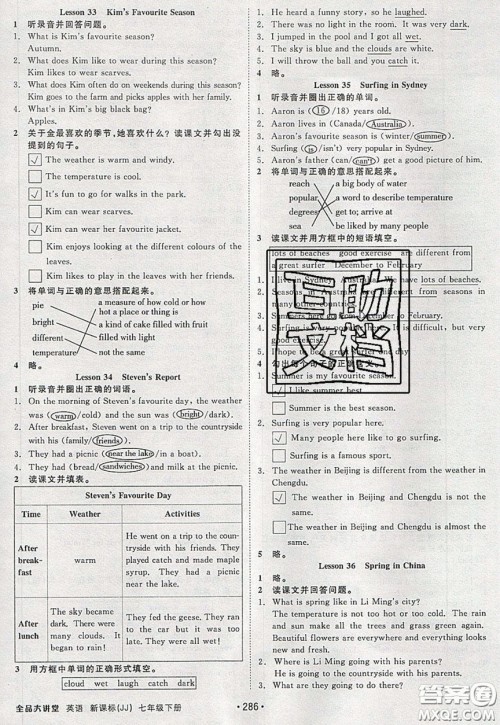 Lesson 33 Kim's Favourite Season
1 听录音并回答问题。
1. What is Kim's favourite season?
Autumn.
2. What does Kim like to wear during this season?
Kim likes to wear scarves.
3. What does Kim often do on weekends during this season?
Kim goes to the farm and picks apples with her friends.
4. What's in Kim's big black bag?
Apples.
2 关于金最喜欢的季节,她喜欢什么? 读课文并勾出没
提到的句子。
√ The weather is warm and windy.
The temperature is cool.
√ It's fun to go for walks in the park.
Kim can wear scarves.
√ Kim can wear her favourite jacket.
Kim enjoys looking at the different colours of the
leaves.
Kim likes to play in the leaves with her friends.
3 将单词与正确的意思搭配起来。
pie a measure of how cold or how
hot a place or thing is
bright a kind of cake filled with fruit
different filled with light
temperature not the same
4 略。
Lesson 34 Steven's Report
1 听录音并圈出正确的词语。
1. On the morning of Steven's favourite day, the weather
was (warm/cold) and the sun was (bright/dark).
2. After breakfast, Steven went on a trip to the countryside
with his (family/friends).
3. They had a picnic (near the lake/in a boat).
4. They had (bread/sandwiches) and milk at the picnic.
2 读课文并填表。
Steven's Favourite Day
Time Weather Activities
After
break-
fast
warm
He went on a trip to the coun-
tryside with his friends. They
played catch and made maple
syrup. They had a picnic near
the lake.
After
lunch
The sky became
dark. There were
many clouds. It
began to rain.
They fed the geese. They ran
to the car but it was too
late. They were all wet and
they laughed.
3 用方框中单词的正确形式填空。
cloud wet laugh catch dark
全品大讲堂 英语 新课标(JJ) 七年级下册
·286·
1. He heard a funny story, so he laughed.
2. There was no light in the room. It was very dark.
3. I jumped in the pool and I got all wet.
4. The sky is blue and the clouds are white.
5. I will throw the ball and you catch it.
4 略。
Lesson 35 Surfing in Sydney
1 听录音并圈出正确的单词。
1. Aaron is (16/18) years old.
2. Aaron lives in (Canada/Australia).
3. Aaron's favourite season is (winter/summer).
4. Surfing (is/isn't) very popular in Sydney.
5. Aaron's father (can/can't) get a good picture of him.
2 将单词与正确的意思搭配起来。
reach a big body of water
popular a word to describe temperature
degrees get to; arrive at
sea liked by many people
3 读课文并用方框中的短语填空。
lots of beaches good exercise are different from
a great surfer December to February
1. I live in Sydney, Australia. We have lots of beaches.
2. Seasons in Australia are different from seasons in
many other countries.
3. Summers here go from December to February.
4. Surfing is very popular here. It is difficult, but very
good exercise.
5. I hope to be a great surfer one day.
4
1. Summer is my favourite season.
√ I like summer best.
Summer is the best season.
2. Surfing is very popular here.
√ Many people here like to go surfing.
Surfing is difficult for many people.
3. The weather in Beijing is different from the weather in
Chengdu.
√ The weather in Beijing and Chengdu is not the
same.
The weather in Beijing and Chengdu is often
different.
5 略。
Lesson 36 Spring in China
1 略。
2 读课文并回答问题。
1. What is spring like in Li Ming's city?
The temperature is not too hot or too cold. The rain
and sun make the grass and trees green again.
Beautiful flowers are everywhere and everything looks
new and fresh.
2. Where is Li Ming going with his parents?
Li Ming is going with his parents to his grandparents'